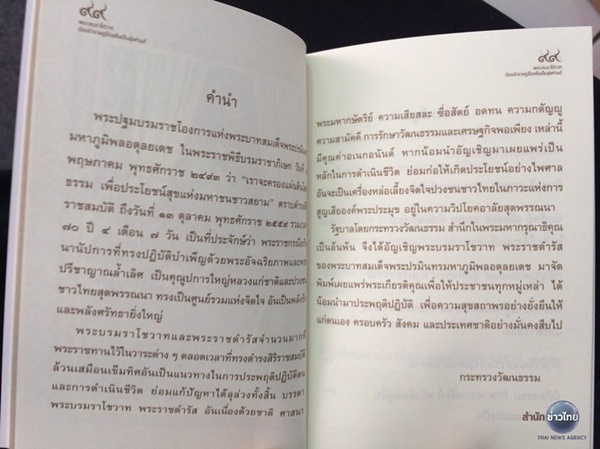 ๙๙
พระบรมราโชวาท
น้อมรำลึกอยู่ในดวงใจเป็นสุขศานต์
คำนำ
พระปฐมบรมราชโองการแห่งพระบาทสมเด็จพระปรมินท
มหาภูมิพลอดุลยเดช ในพระราชพิธีบรมราชาภิเษก วันที่
พฤษภาคม พุทธศักราช ๒๔๙๓ ว่า “เราจะครองแผ่นดินโดย
ธรรม เพื่อประโยชน์สุขแห่งมหาชนชาวสยาม” ตราบดำรงสิริ
ราชสมบัติ ถึงวันที่ ๑๓ ตุลาคม พุทธศักราช ๒๕๕๙ รวมเวลา
๗๐ ปี ๔ เดือน ๗ วัน เป็นที่ประจักษ์ว่า พระราชกรณียกิจ
นานัปการที่ทรงปฏิบัติบำเพ็ญด้วยพระอัจฉริยภาพและพระ
ปรีชาญาณล้ำเลิศ เป็นคุณูปการใหญ่หลวงแก่ชาติและปวง
ชาวไทยสุดพรรณนา ทรงเป็นศูนย์รวมแห่งจิตใจ อันเป็นพลัง
และพลังศรัทธายิ่งใหญ่
พระบรมราโชวาทและพระราชดำรัสจำนวนมากที่
พระราชทานไว้ในวาระต่าง ๆ ตลอดเวลาที่ทรงดำรงสิริราชสมบัติ
ล้วนเสมือนเข็มทิศอันเป็นแนวทางในการประพฤติปฏิบัติตน
และการดำเนินชีวิต ย่อมแก้ปัญหาได้ลุล่วงทั้งสิ้น บรรดา
พระบรมราโชวาท พระราชดำรัส อันเนื่องด้วยชาติ ศาสนา
๙๙
พระบรมราโชวาท
น้อมรำลึกอยู่ในดวงใจเป็นสุขศานต์
พระมหากษัตริย์ ความเสียสละ ซื่อสัตย์ อดทน ความกตัญญู
ความสามัคคี การรักษาวัฒนธรรมและเศรษฐกิจพอเพียง เหล่านี้
มีคุณค่าอเนกอนันต์ หากน้อมนำอัญเชิญมาเผยแพร่เป็น
หลักในการดำเนินชีวิต ย่อมก่อให้เกิดประโยชน์อย่างไพศาล
อันจะเป็นเครื่องหล่อเลี้ยงจิตใจปวงชนชาวไทยในภาวะแห่งการ
สูญเสียองค์พระประมุข อยู่ในความวิปโยคอาลัยสุดพรรณนา
รัฐบาลโดยกระทรวงวัฒนธรรม สำนึกในพระมหากรุณาธิคุณ
เป็นล้นพ้น จึงได้อัญเชิญพระบรมราโชวาท พระราชดำรัส
ของพระบาทสมเด็จพระปรมินทรมหาภูมิพลอดุลยเดช มาจัด
พิมพ์เผยแพร่พระเกียรติคุณเพื่อให้ประชาชนทุกหมู่เหล่า ได้
น้อมนำมาประพฤติปฏิบัติ เพื่อความสุขสถาพรอย่างยั่งยืนให้
แก่ตนเอง ครอบครัว สังคม และประเทศชาติอย่างมั่นคงสืบไป
กระทรวงวัฒนธรรม
สำนักข่าวไทย
THAI NEWS AGENCY